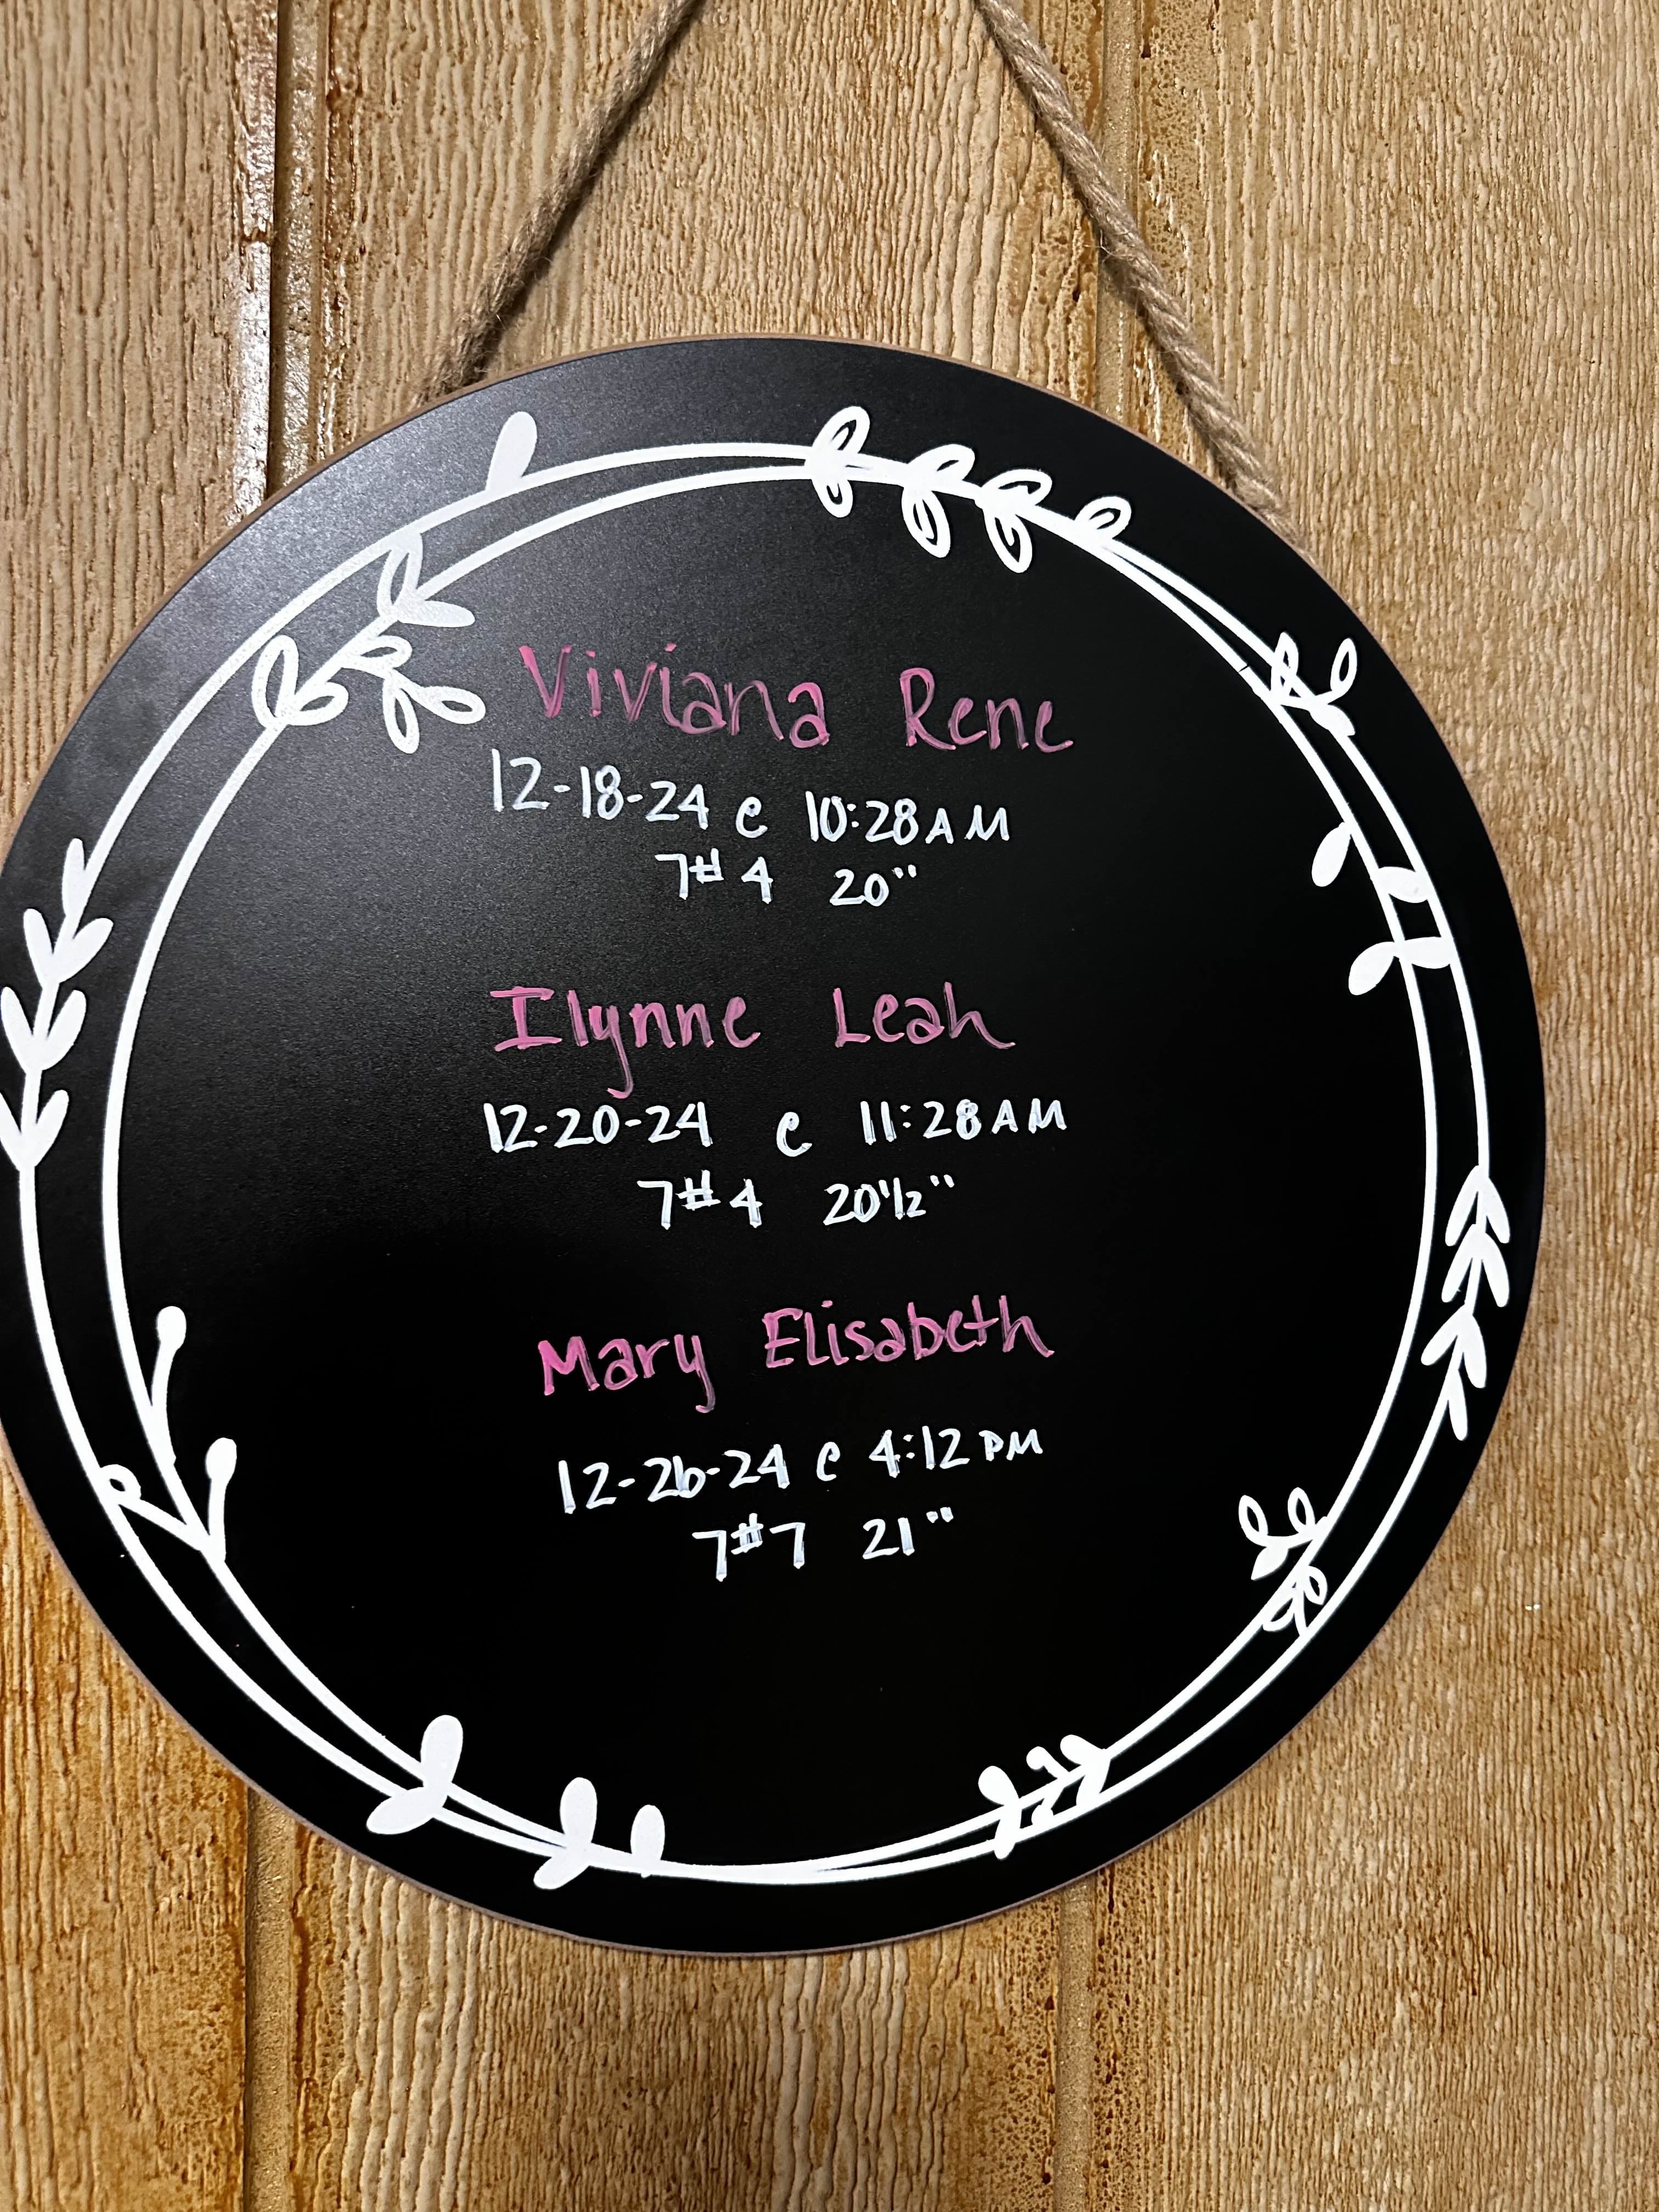 Viviana Rene
12-18-24 @ 10:28AM
7# 4 20"
Ilynne Leah
12-20-24 @ 11:28AM
7# 4 20 1/2"
Mary Elisabeth
12-26-24 @ 4:12 PM
7# 7 21"